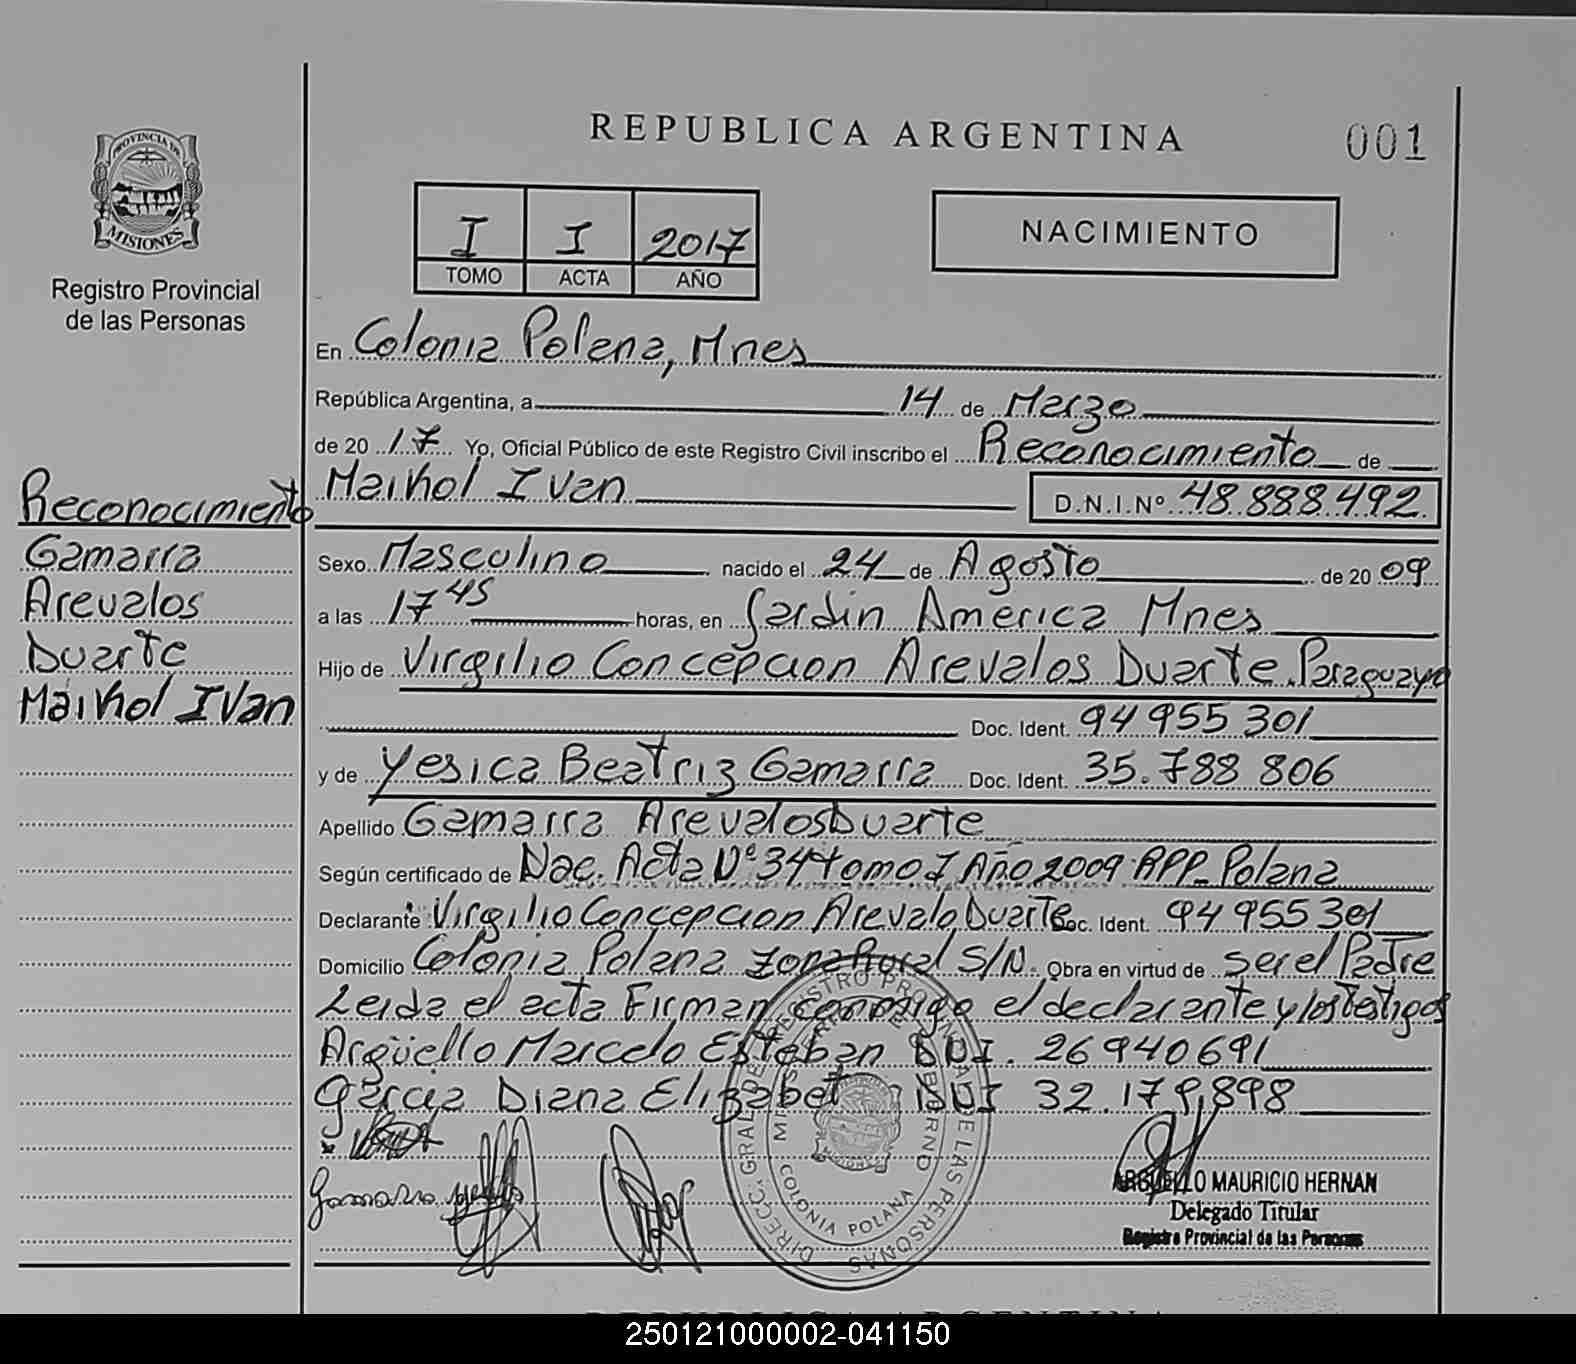 REPUBLICA ARGENTINA
001
PROVINCIA DE
MISIONES
Registro Provincial
de las Personas
I I 2017
TOMO ACTA AÑO
NACIMIENTO
En Colonia Polana, Mnes
República Argentina, a 14 de Marzo
de 20 17 Yo, Oficial Público de este Registro Civil inscribo el Reconocimiento de
Maikol Ivan D.N.I.Nº 48.888.492
Reconocimiento
Gamarra
Arevalos
Duarte
Maikol Ivan
Sexo Masculino nacido el 24 de Agosto de 20 09
a las 17 45 horas, en Jardin America Mnes
Hijo de Virgilio Concepcion Arevalos Duarte. Paraguayo
Doc. Ident. 94 955 301
y de Yesica Beatriz Gamarra Doc. Ident. 35.788 806
Apellido Gamarra Arevalos Duarte
Según certificado de Nac. Acta Nº 344 tomo I Año 2009 RPP_ Polana
Declarante Virgilio Concepcion Arevalo Duarte Doc. Ident. 94 955 301
Domicilio Colonia Polana zona Rural S/N. Obra en virtud de ser el Padre
Leida el acta Firman conmigo el declarante y los testigos
Argüello Marcelo Esteban DNI. 26940691
Garcia Diana Elizabet DNI 32.179.898
Gamarra
DIRECC. GRAL DEL REGISTRO PROVINCIAL DE LAS PERSONAS
MINISTERIO DE GOBIERNO
MISIONES
COLONIA POLANA
ARGUELLO MAURICIO HERNAN
Delegado Titular
Registro Provincial de las Personas
REPUBLICA ARGENTINA
250121000002-041150